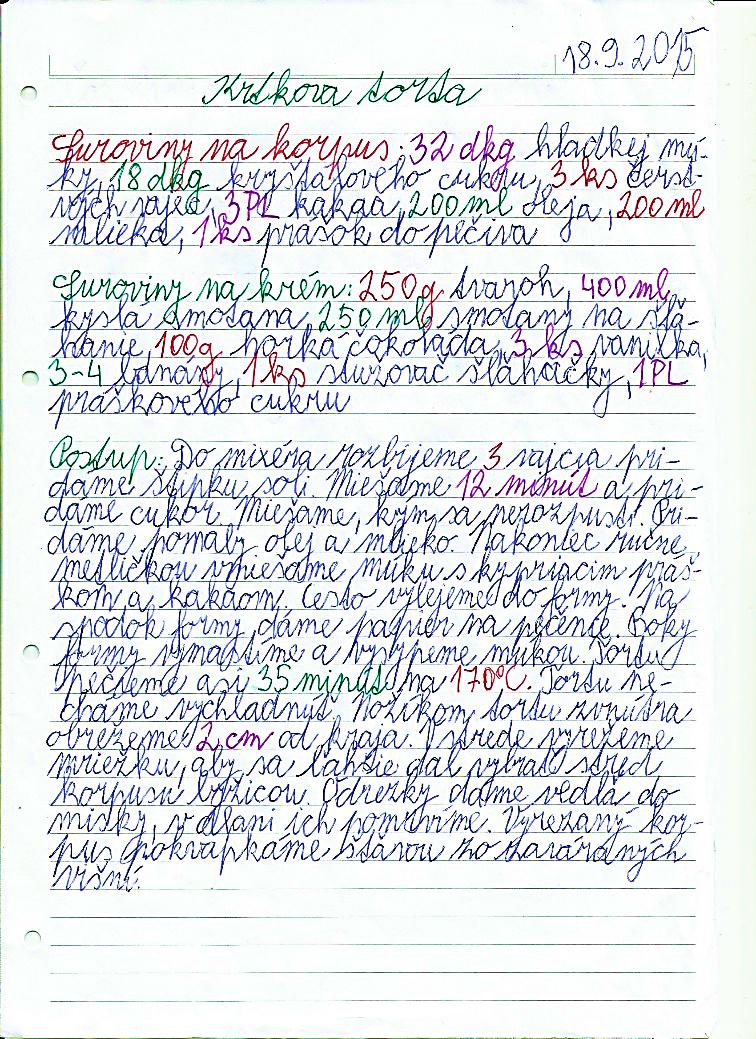 18.9.2015
Krtkova torta
Suroviny na korpus: 32 dkg hladkej mú-
ky, 18 dkg kryštálového cukru, 3 ks čerst-
vých vajec, 3PL kakaa, 200 ml oleja, 200 ml
mlieka, 1 ks prášok do pečiva
Suroviny na krém: 250g tvaroh, 400 ml
kyslá smotana, 250 ml smotany na šľa-
hanie, 100g horká čokoláda, 3 ks vanilka,
3-4 banány, 1 ks stužovač šľahačky, 1PL
práškového cukru
Postup: Do mixéra rozbijeme 3 vajcia pri-
dáme štipku soli. Miešame 12 minút a pri-
dáme cukor. Miešame, kým sa nerozpustí. Pri-
dáme pomaly olej a mlieko. Nakoniec ručne
metličkou vmiešame múku s kypriacim práš-
kom a kakaom. Cesto vylejeme do formy. Na
spodok formy dáme papier na pečenie. Boky
formy vymastíme a vysypeme múkou. Tortu
pečieme asi 35 minút na 170°C. Tortu ne-
cháme vychladnúť. Nožíkom tortu zvnútra
obrežeme 2 cm od kraja. V strede vyrežeme
mriežku, aby sa ľahšie dal vybrať stred
korpusu lyžicou. Odrezky dáme vedľa do
misky, v dlani ich pomrvíme. Vyrezaný kor-
pus pokvapkáme šťavou zo zaváraných
višní.